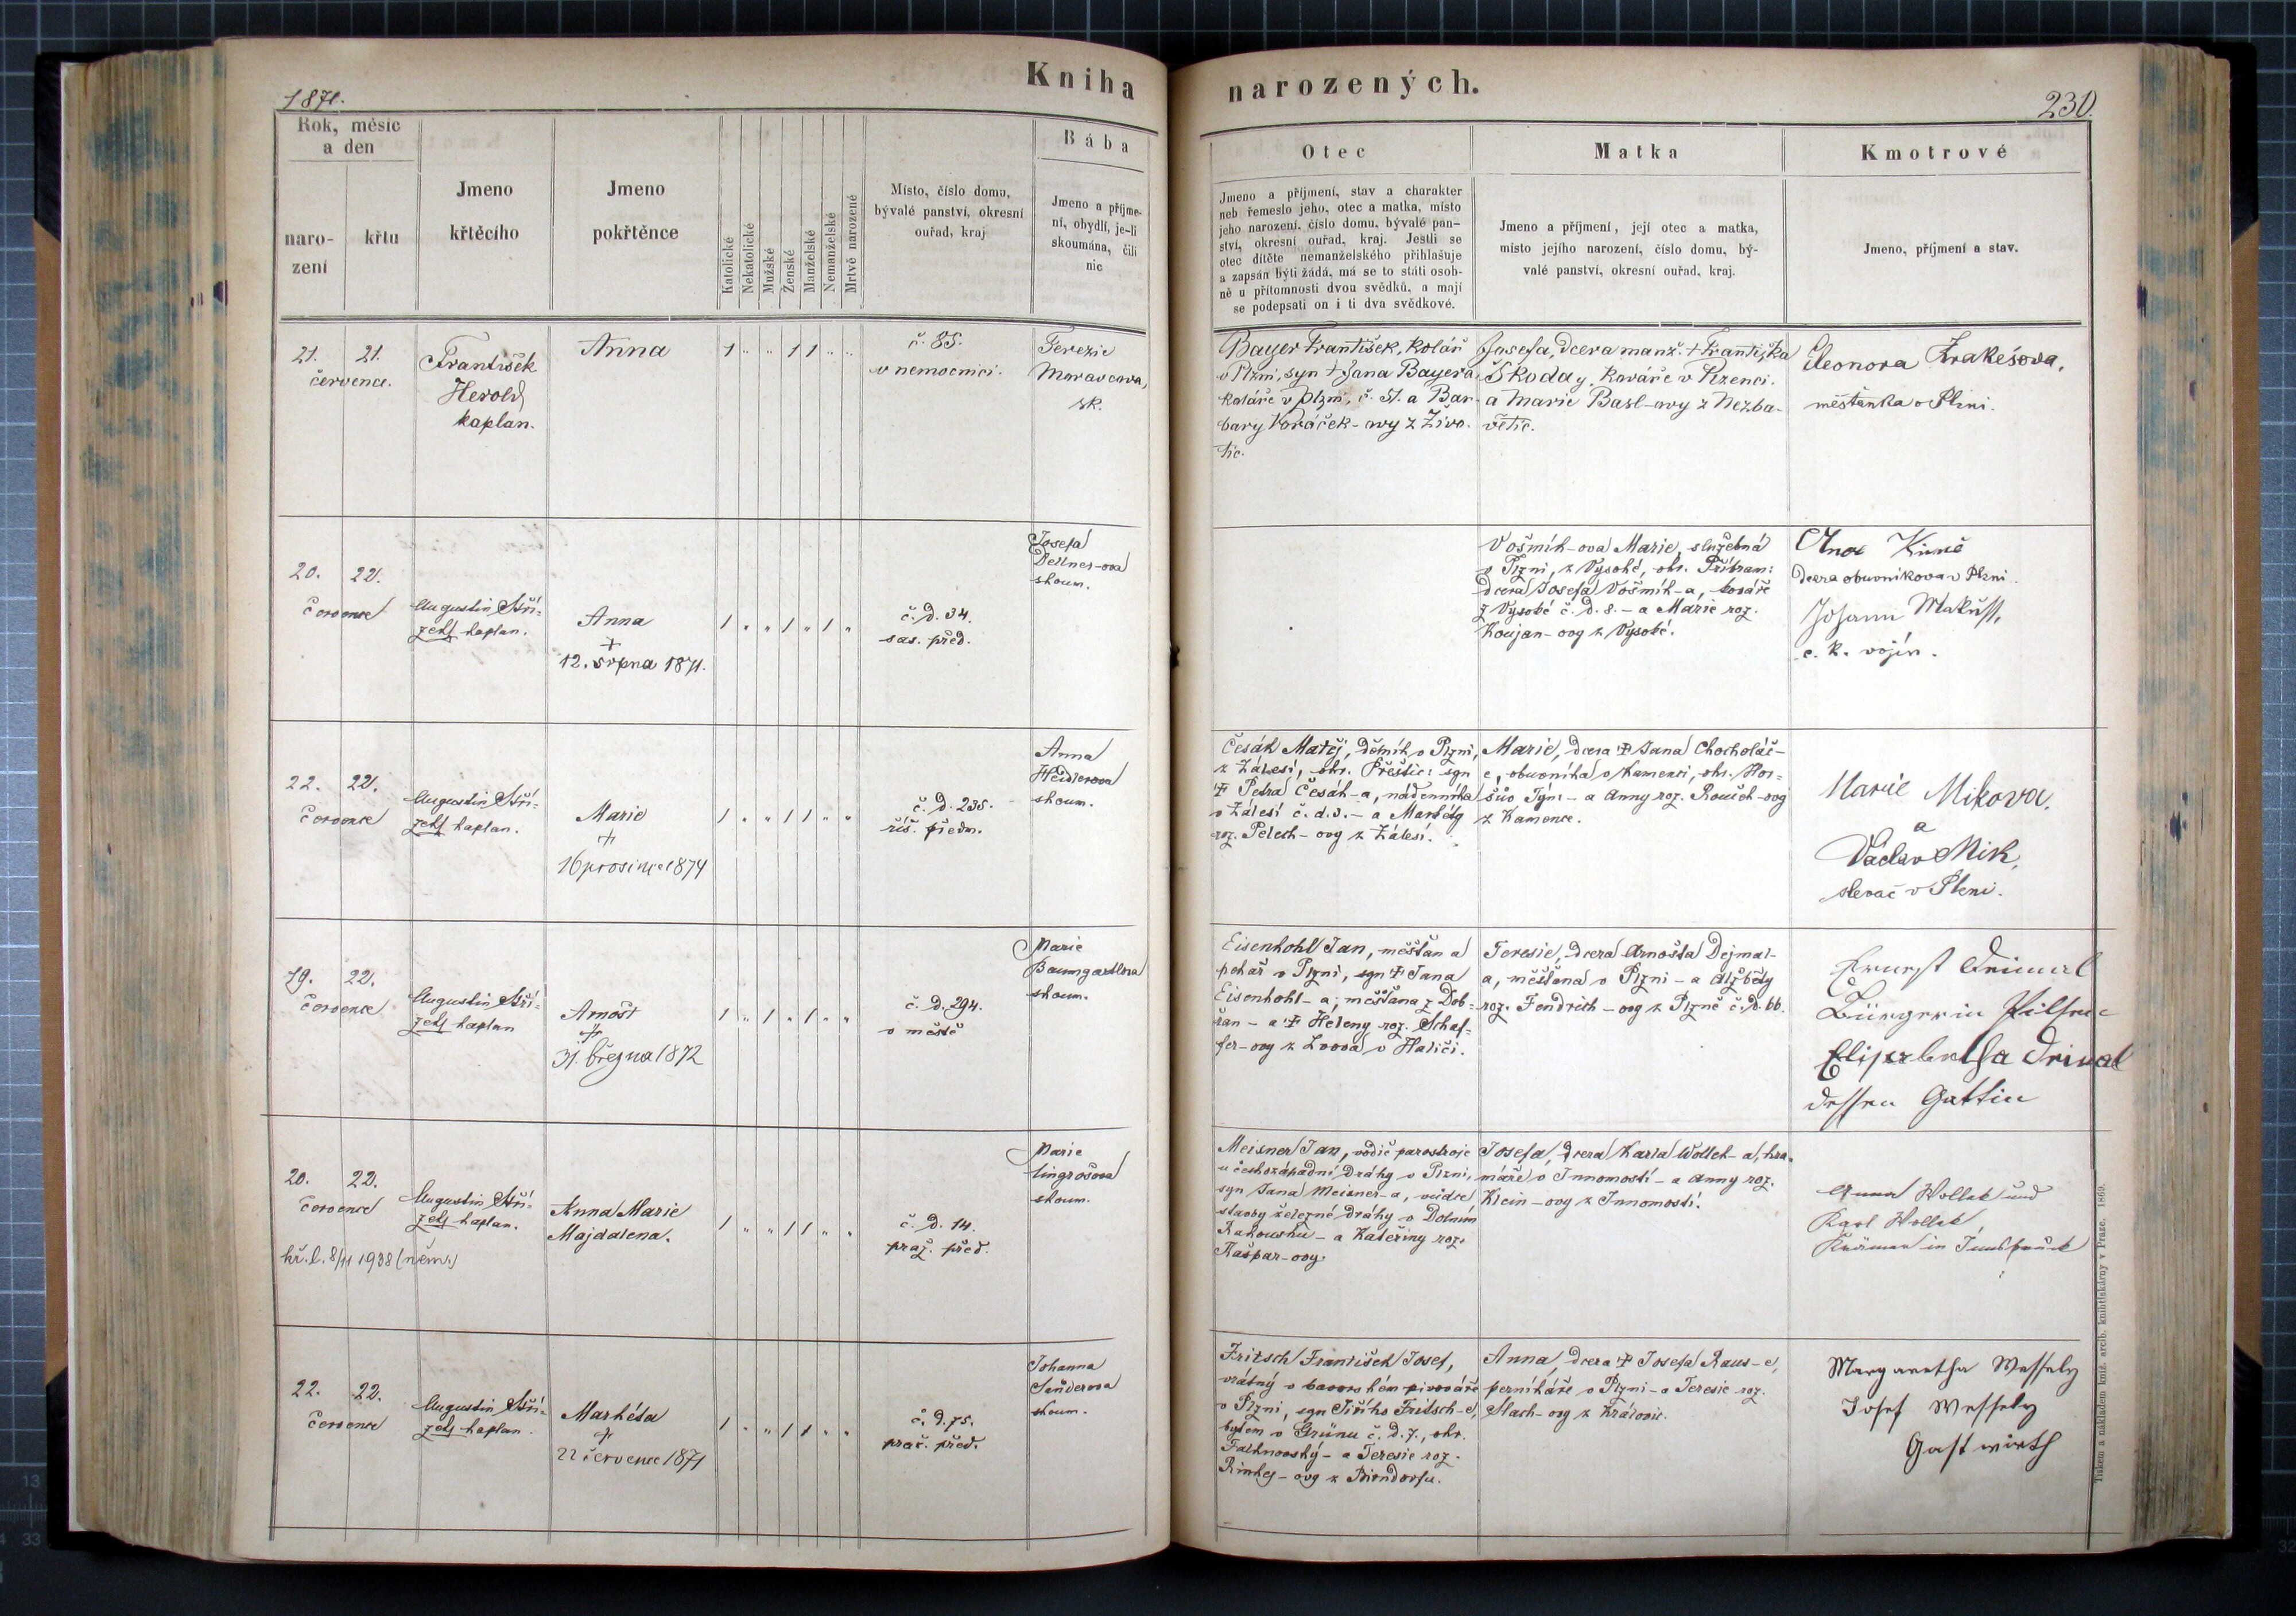 Kniha
narozených.
1871.
230.
Rok, měsíc
a den
naro-
zení
křtu
Jmeno
křtěcího
Jmeno
pokřtěnce
Katolické
Nekatolické
Mužské
Ženské
Manželské
Nemanželské
Mrtvě narozené
Místo, číslo domu,
bývalé panství, okresní
ouřad, kraj
Bába
Jmeno a příjme-
ní, obydlí, je-li
skoumána, čili
nic
Otec
Jmeno a příjmení, stav a charakter
neb řemeslo jeho, otec a matka, místo
jeho narození, číslo domu, bývalé pan-
ství, okresní ouřad, kraj. Jestli se
otec dítěte nemanželského přihlašuje
a zapsán býti žádá, má se to státi osob-
ně u přítomnosti dvou svědků, a mají
se podepsati on i ti dva svědkové.
Matka
Jmeno a příjmení, její otec a matka,
místo jejího narození, číslo domu, bý-
valé panství, okresní ouřad, kraj.
Kmotrové
Jmeno, příjmení a stav.
21. 21.
července.
František
Herold
kaplan.
Anna
1 " " 1 1 " "
č. 85.
v nemocnici.
Terezie
Moravcova,
sk.
Bayer František, kolář
v Plzni, syn † Jana Bayera,
koláře v Plzni, č. 51. a Bar-
bary Voráček-ovy z Živo-
tic.
Josefa, dcera manž. † Františka
Škody, kováře v Kzenci.
a Marie Basl-ovy z Nezba-
větic.
Eleonora Krakešova,
měšťanka v Plzni.
20. 22.
července
Augustin Stří-
zek, kaplan.
Anna
+
12. srpna 1871.
1 " " 1 " 1 "
č. d. 34.
sas. před.
Josefa
Dellner-ova
skoum.
Vošmik-ova Marie, služebná
v Plzni, z Vysoké, okr. Příbram:
dcera Josefa Vošmik-a, kováře
z Vysoké č. d. 8. - a Marie roz.
Koujan-ovy z Vysoké.
Anna
dcera obuvníkova v Plzni.
Johann
c. k. vojín.
22. 22.
července
Augustin Stří-
zek, kaplan.
Marie
+
16 prosince 1874
1 " " 1 1 " "
č. d. 235.
říš. předm.
Anna
Heidlerova
skoum.
Česák Matěj, dělník v Plzni,
z Zálesí, okr. Přeštic: syn
† Petra Česák-a, nádenníka
v Zálesí č. d. 3. - a Markéty
roz. Pelech-ovy z Zálesí.
Marie, dcera † Jana Chocholáč-
e, obuvníka v Kamenci, okr. Hor-
šův Týn: - a Anny roz. Rouček-ovy
z Kamence.
Marie Mikova.
a
Václav Mik,
slevač v Plzni.
19. 22.
července
Augustin Stří-
zek, kaplan
Arnošt
+
31. března 1872
1 " 1 " 1 " "
č. d. 294.
v městě
Marie
Baumgartlova
skoum.
Eisenhohl Jan, měšťan a
pekař v Plzni, syn † Jana
Eisenhohl-a, měšťana z Dob-
řan - a † Heleny roz. Schaf-
fer-ovy z Lvova v Haliči.
Teresie, dcera Arnošta Dejmal-
a, měšťana v Plzni - a Alžběty
roz. Fendrich-ovy z Plzně č. d. 66.
Ernest Deimal
Bürger in Pilsen
Elisabetha Deimal
dessen Gattin
20. 22.
července
kř. l. 8/11 1938 (něm.)
Augustin Stří-
zek, kaplan.
Anna Marie
Majdalena.
1 " " 1 1 " "
č. d. 14.
praž. před.
Marie
Lingrošova
skoum.
Meisner Jan, vodič parostroje
u českozápadní dráhy v Plzni,
syn Jana Meisner-a, vůdce
stavby železné dráhy v Dolním
Rakousku - a Kateřiny roz.
Kašpar-ovy.
Josefa, dcera Karla Wollek-a, kra-
máře v Innomostí - a Anny roz.
Klein-ovy z Innomostí.
Anna Wollek und
Karl Wollek
Krämer in Innsbruck
22. 22.
července
Augustin Stří-
zek, kaplan.
Markéta
+
22 července 1871
1 " " 1 1 " "
č. d. 75.
praž. před.
Johanna
skoum.
Fritsch František Josef,
vrátný v bavorském pivováře
v Plzni, syn Jiřího Fritsch-e,
bytem v Grünu č. d. 7., okr.
Falknovský - a Teresie roz.
z Birndorfu.
Anna, dcera † Josefa Raus-e,
perníkáře v Plzni - a Teresie roz.
Slach-ovy z Královic.
Margaretha Wessely
Josef Wessely
Gastwirth
Tiskem a nákladem kníž. arcib. knihtiskárny v Praze. 1869.